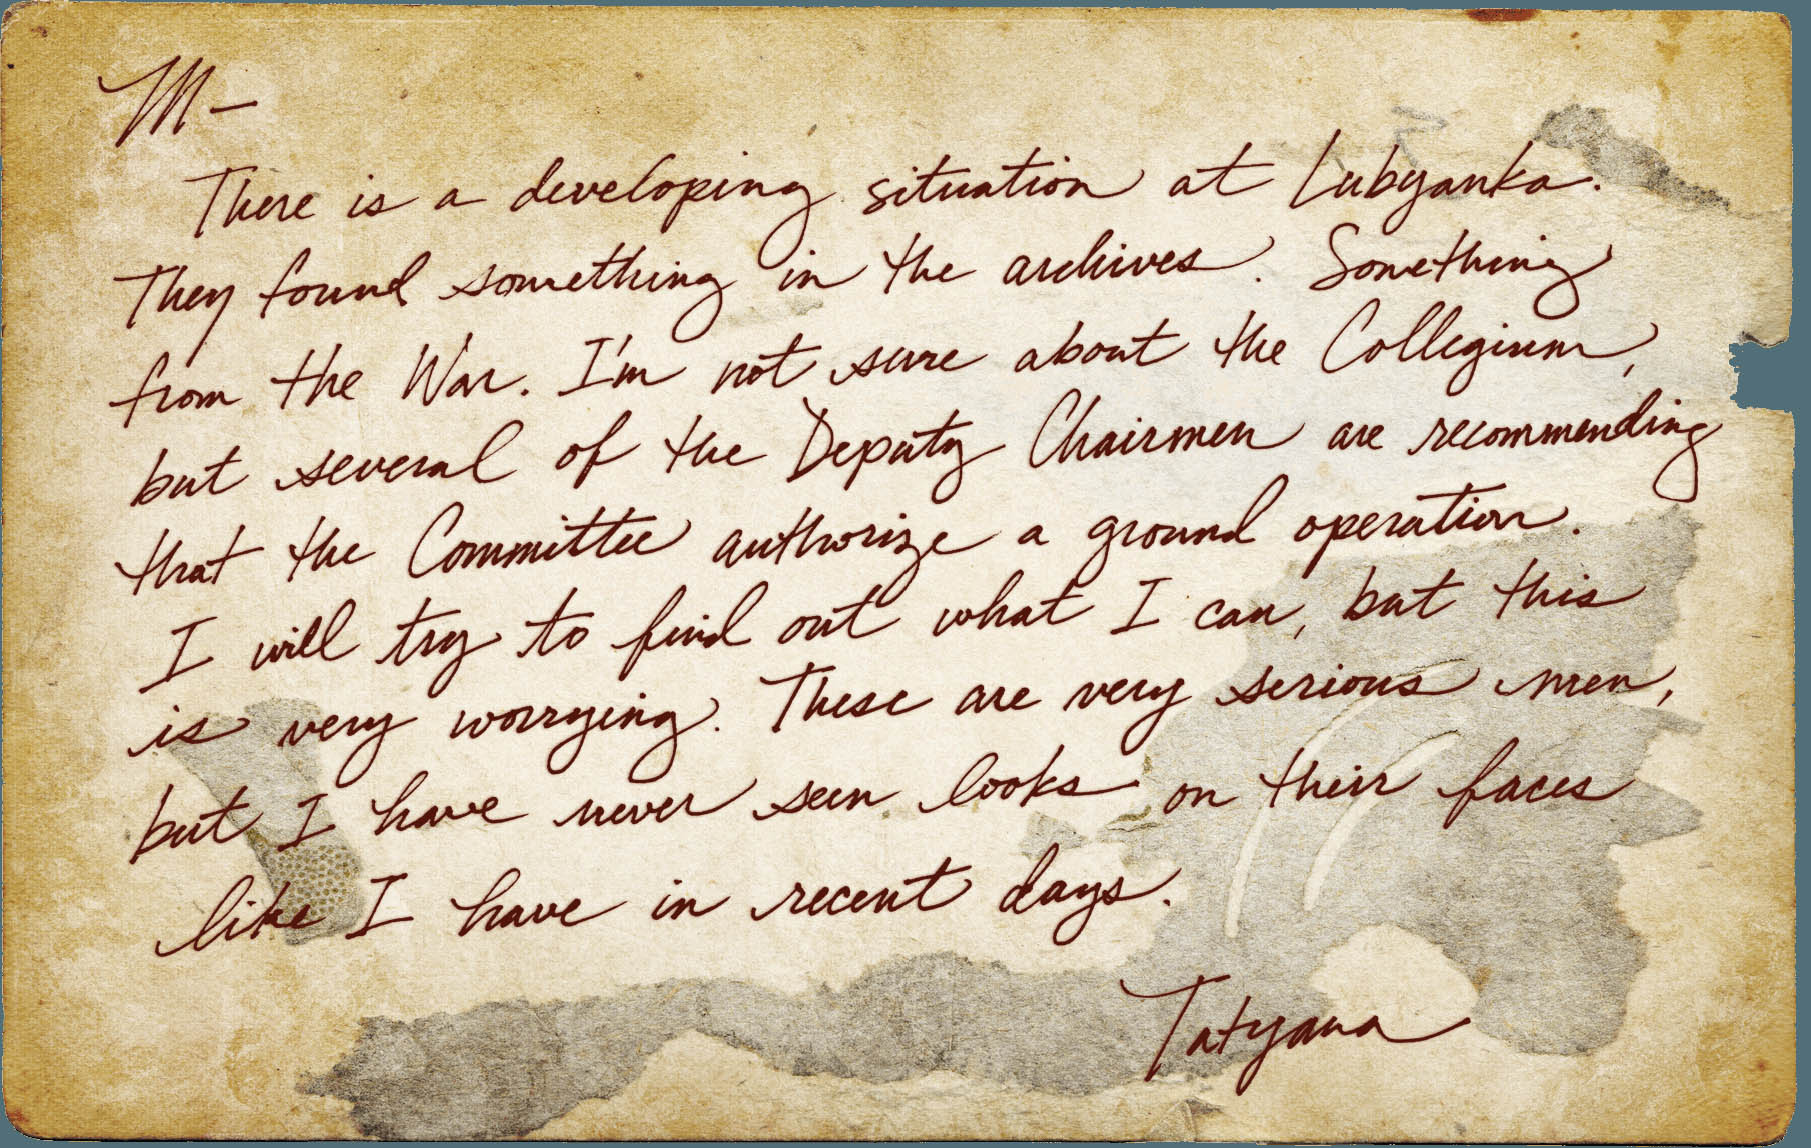 M–
There is a developing situation at Lubyanka.
They found something in the archives. Something
from the War. I'm not sure about the Collegium,
but several of the Deputy Chairmen are recommending
that the Committee authorize a ground operation.
I will try to find out what I can, but this
is very worrying. These are very serious men,
but I have never seen looks on their faces
like I have in recent days.
Tatyana